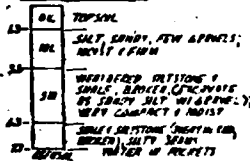 OL TOPSOIL
ML SILT, SANDY, FEW GRAVELS;
MOIST & FIRM
SM WEATHERED SILTSTONE &
SHALE, BROKEN, EXCAVATE
AS SANDY SILT W/GRAVELS;
VERY COMPACT & MOIST
SHALE & SILTSTONE
BROKEN), SILTY SEAMS
WATER IN POCKETS
REFUSAL